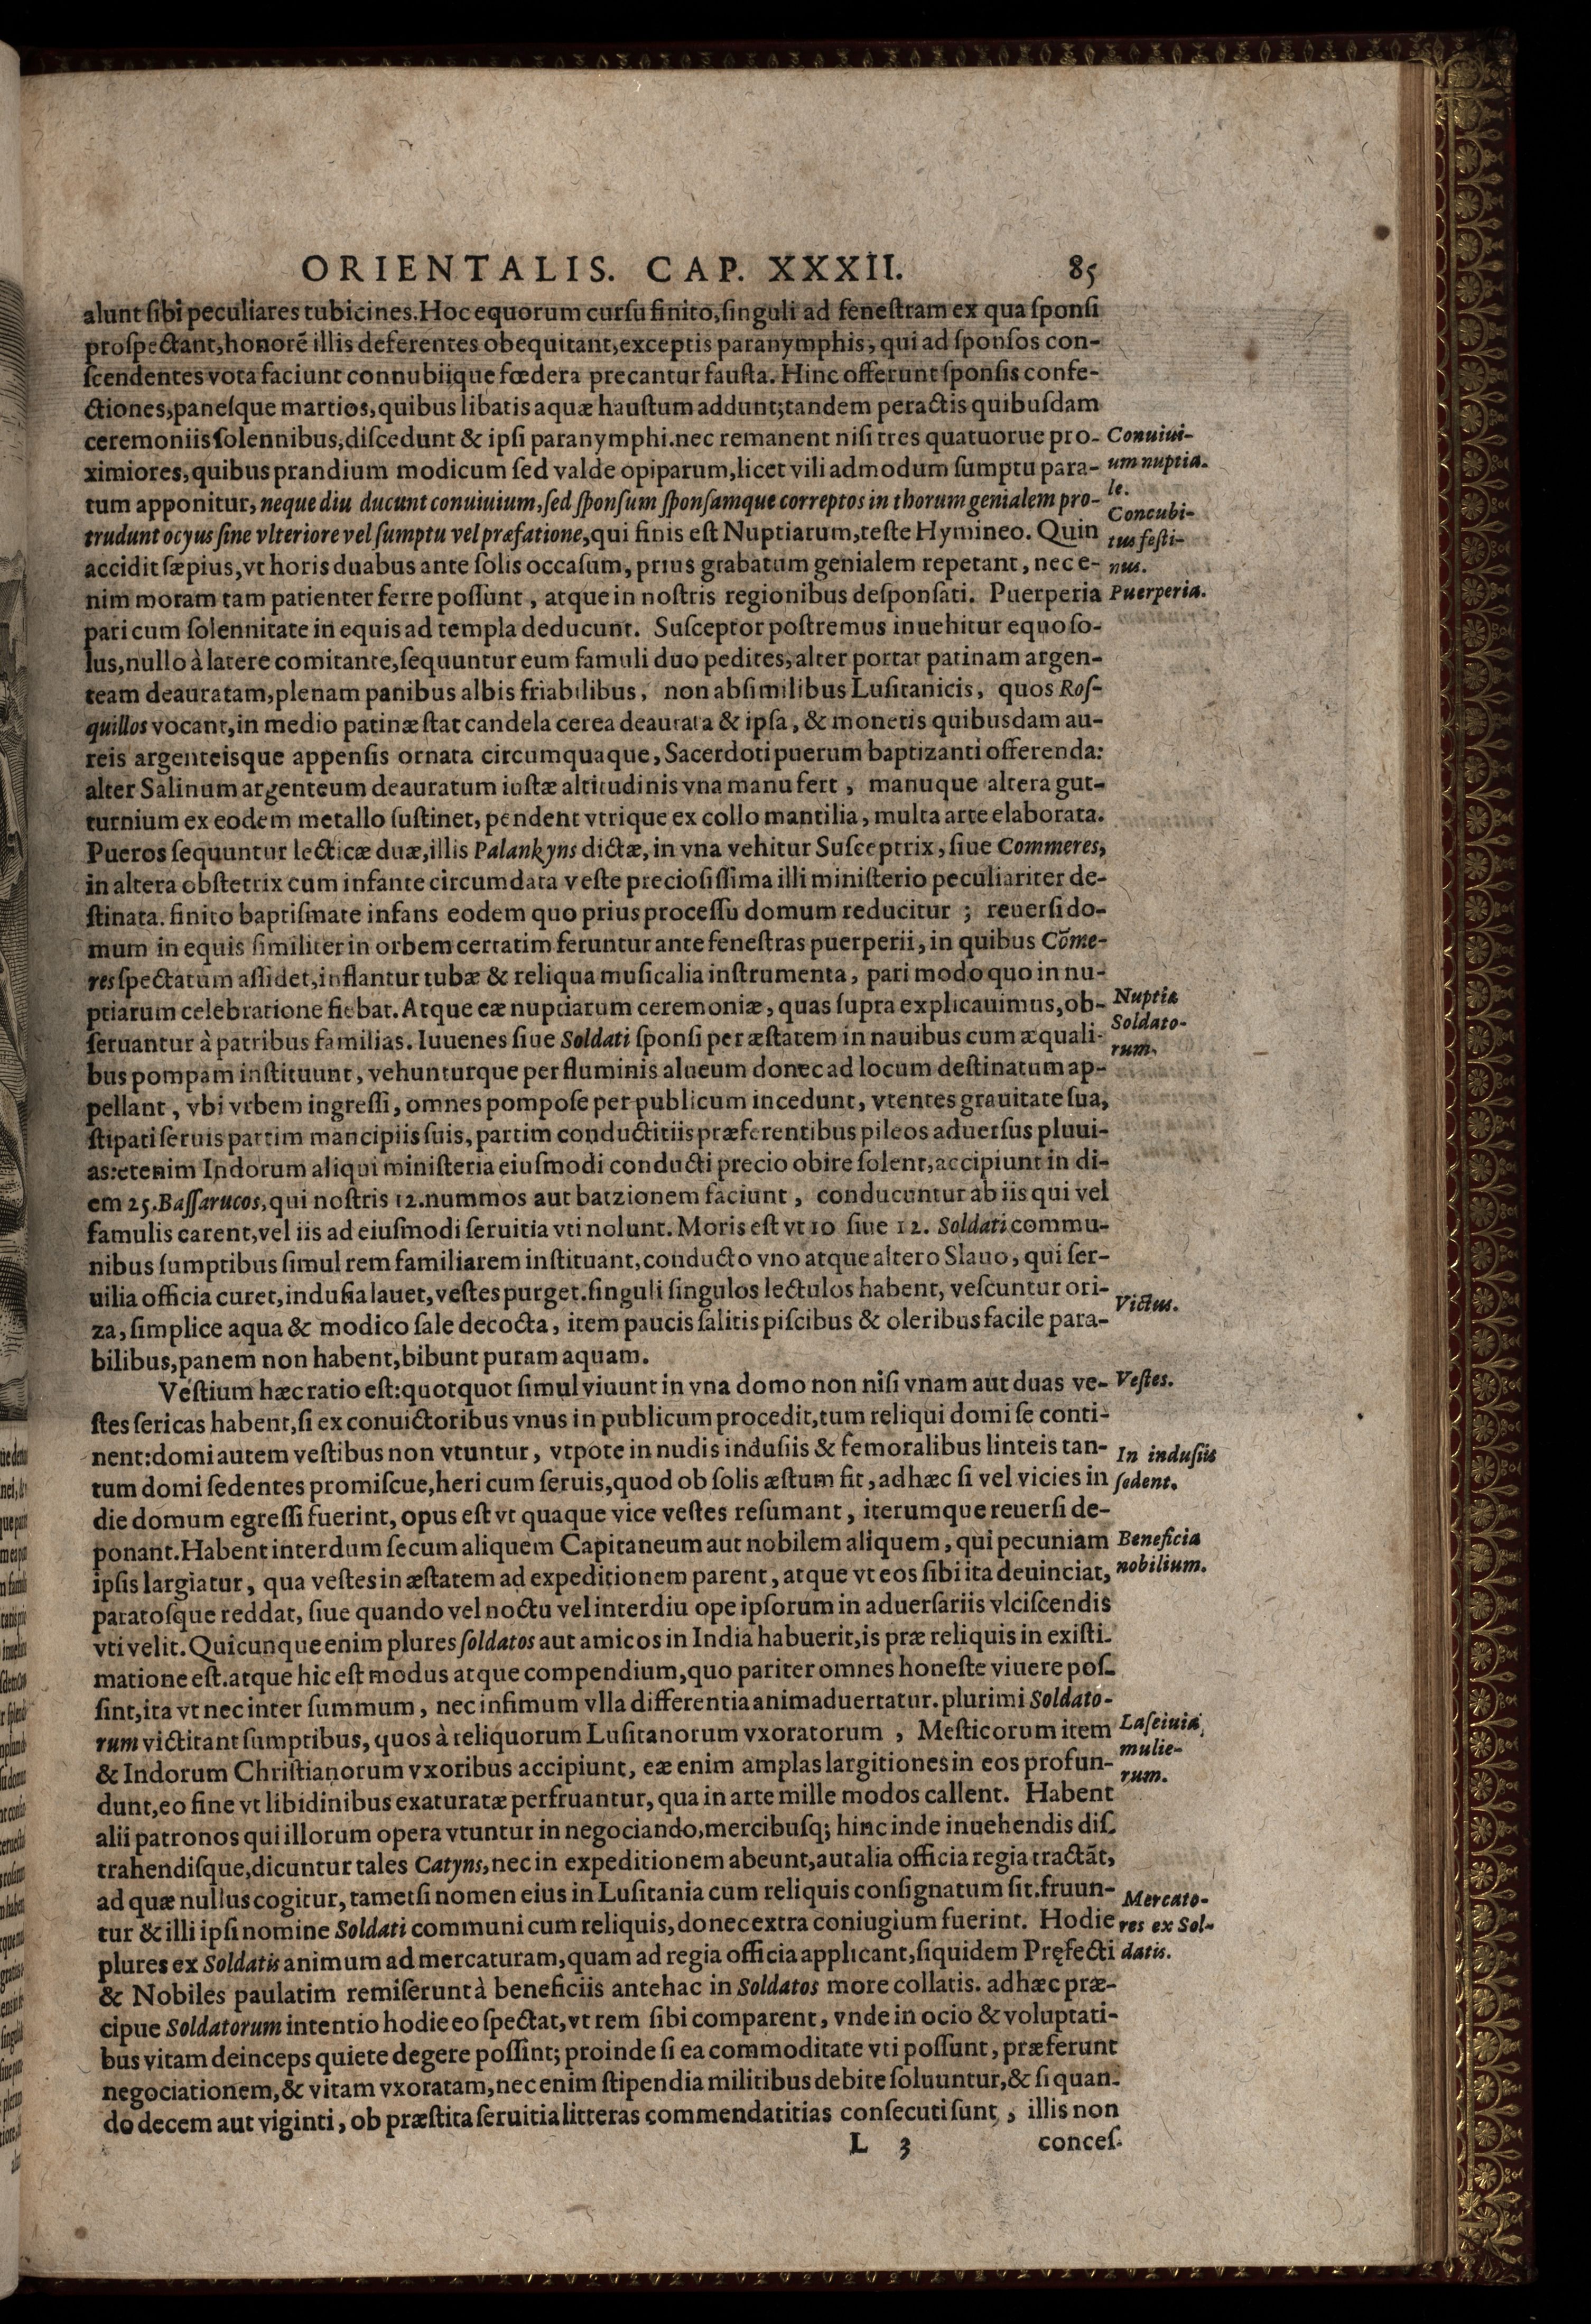 ORIENTALIS. CAP. XXXII. 85
alunt ſibi peculiares tubicines. Hoc equorum curſu finito, ſinguli ad feneſtram ex qua ſponſi
proſpectant, honorē illis deferentes obequitant, exceptis paranymphis, qui ad ſponſos con-
ſcendentes vota faciunt connubiique fœdera precantur fauſta. Hinc offerunt ſponſis confe-
ctiones, paneſque martios, quibus libatis aquæ hauſtum addunt; tandem peractis quibuſdam
ceremoniis ſolennibus, diſcedunt & ipſi paranymphi. nec remanent niſi tres quatuorue pro-
ximiores, quibus prandium modicum ſed valde opiparum, licet vili admodum ſumptu para-
tum apponitur, neque diu ducunt conuiuium, ſed ſponſum ſponſamque correptos in thorum genialem pro-
trudunt ocyus ſine vlteriore vel ſumptu vel præfatione, qui finis eſt Nuptiarum, teſte Hymineo. Quin
accidit ſæpius, vt horis duabus ante ſolis occaſum, prius grabatum genialem repetant, nec e-
nim moram tam patienter ferre poſſunt, atque in noſtris regionibus deſponſati. Puerperia
pari cum ſolennitate in equis ad templa deducunt. Suſceptor poſtremus inuehitur equo ſo-
lus, nullo à latere comitante, ſequuntur eum famuli duo pedites, alter portat patinam argen-
team deauratam, plenam panibus albis friabilibus, non abſimilibus Luſitanicis, quos Roſ-
quillos vocant, in medio patinæ ſtat candela cerea deaurata & ipſa, & monetis quibusdam au-
reis argenteisque appenſis ornata circumquaque, Sacerdoti puerum baptizanti offerenda:
alter Salinum argenteum deauratum iuſtæ altitudinis vna manu fert, manuque altera gut-
turnium ex eodem metallo ſuſtinet, pendent vtrique ex collo mantilia, multa arte elaborata.
Pueros ſequuntur lecticæ duæ, illis Palankyns dictæ, in vna vehitur Suſceptrix, ſiue Commeres,
in altera obſtetrix cum infante circumdata veſte precioſiſſima illi miniſterio peculiariter de-
ſtinata. finito baptiſmate infans eodem quo prius proceſſu domum reducitur ; reuerſi do-
mum in equis ſimiliter in orbem certatim feruntur ante feneſtras puerperii, in quibus Cōme-
res ſpectatum aſſidet, inflantur tubæ & reliqua muſicalia inſtrumenta, pari modo quo in nu-
ptiarum celebratione fiebat. Atque eæ nuptiarum ceremoniæ, quas ſupra explicauimus, ob-
ſeruantur à patribus familias. Iuuenes ſiue Soldati ſponſi per æſtatem in nauibus cum æquali-
bus pompam inſtituunt, vehunturque per fluminis alueum donec ad locum deſtinatum ap-
pellant, vbi vrbem ingreſſi, omnes pompoſe per publicum incedunt, vtentes grauitate ſua,
ſtipati ſeruis partim mancipiis ſuis, partim conductitiis præferentibus pileos aduerſus pluui-
as: etenim Indorum aliqui miniſteria eiuſmodi conducti precio obire ſolent, accipiunt in di-
em 25. Baſſarucos, qui noſtris 12. nummos aut batzionem faciunt, conducuntur ab iis qui vel
famulis carent, vel iis ad eiuſmodi ſeruitia vti nolunt. Moris eſt vt 10 ſiue 12. Soldati commu-
nibus ſumptibus ſimul rem familiarem inſtituant, conducto vno atque altero Slauo, qui ſer-
uilia officia curet, induſia lauet, veſtes purget. ſinguli ſingulos lectulos habent, veſcuntur ori-
za, ſimplice aqua & modico ſale decocta, item paucis ſalitis piſcibus & oleribus facile para-
bilibus, panem non habent, bibunt puram aquam.
Veſtium hæc ratio eſt: quotquot ſimul viuunt in vna domo non niſi vnam aut duas ve-
ſtes ſericas habent, ſi ex conuictoribus vnus in publicum procedit, tum reliqui domi ſe conti-
nent: domi autem veſtibus non vtuntur, vtpote in nudis induſiis & femoralibus linteis tan-
tum domi ſedentes promiſcue, heri cum ſeruis, quod ob ſolis æſtum fit, adhæc ſi vel vicies in
die domum egreſſi fuerint, opus eſt vt quaque vice veſtes reſumant, iterumque reuerſi de-
ponant. Habent interdum ſecum aliquem Capitaneum aut nobilem aliquem, qui pecuniam
ipſis largiatur, qua veſtes in æſtatem ad expeditionem parent, atque vt eos ſibi ita deuinciat,
paratoſque reddat, ſiue quando vel noctu vel interdiu ope ipſorum in aduerſariis vlciſcendis
vti velit. Quicunque enim plures ſoldatos aut amicos in India habuerit, is præ reliquis in exiſti-
matione eſt. atque hic eſt modus atque compendium, quo pariter omnes honeſte viuere poſ-
ſint, ita vt nec inter ſummum, nec infimum vlla differentia animaduertatur. plurimi Soldato-
rum victitant ſumptibus, quos à reliquorum Luſitanorum vxoratorum, Meſticorum item
& Indorum Chriſtianorum vxoribus accipiunt, eæ enim amplas largitiones in eos profun-
dunt, eo fine vt libidinibus exaturatæ perfruantur, qua in arte mille modos callent. Habent
alii patronos qui illorum opera vtuntur in negociando, mercibuſq; hinc inde inuehendis diſ-
trahendiſque, dicuntur tales Catyns, nec in expeditionem abeunt, aut alia officia regia tractāt,
ad quæ nullus cogitur, tametſi nomen eius in Luſitania cum reliquis conſignatum ſit. fruun-
tur & illi ipſi nomine Soldati communi cum reliquis, donec extra coniugium fuerint. Hodie
plures ex Soldatis animum ad mercaturam, quam ad regia officia applicant, ſiquidem Pręfecti
& Nobiles paulatim remiſerunt à beneficiis antehac in Soldatos more collatis. adhæc præ-
cipue Soldatorum intentio hodie eo ſpectat, vt rem ſibi comparent, vnde in ocio & voluptati-
bus vitam deinceps quiete degere poſſint; proinde ſi ea commoditate vti poſſunt, præferunt
negociationem, & vitam vxoratam, nec enim ſtipendia militibus debite ſoluuntur, & ſi quan-
do decem aut viginti, ob præſtita ſeruitia litteras commendatitias conſecuti ſunt, illis non
L 3 conceſ-
Conuiui-
um nuptia-
le.
Concubi-
tus feſti-
nus.
Puerperia.
Nuptiæ
Soldato-
rum.
Victus.
Veſtes.
In induſiis
ſedent.
Beneficia
nobilium.
Laſciuia
mulie-
rum.
Mercato-
res ex Sol-
datis.